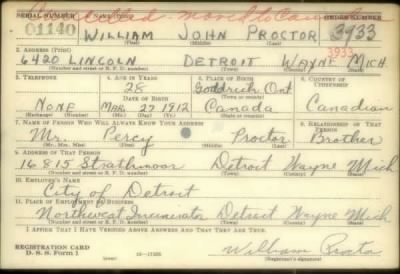 Cancelled - moved to Canada
SERIAL NUMBER 1. NAME (Print) ORDER NUMBER
01140 WILLIAM JOHN PROCTOR 3933
3933
2. ADDRESS (Print)
6420 LINCOLN DETROIT WAYNE MICH
(Number and street or R. F. D. number) (Town) (County) (State)
3. TELEPHONE 4. AGE IN YEARS 5. PLACE OF BIRTH 6. COUNTRY OF CITIZENSHIP
28 Goddrich Ont
DATE OF BIRTH (Town or county)
NONE MAR 27 1912 Canada Canadian
(Exchange) (No.) (Mo.) (Day) (Yr.) (State or country)
7. NAME OF PERSON WHO WILL ALWAYS KNOW YOUR ADDRESS 8. RELATIONSHIP OF THAT PERSON
Mr. Percy Proctor Brother
(Mr., Mrs., Miss) (First) (Middle) (Last)
9. ADDRESS OF THAT PERSON
16815 Strathmoor Detroit Wayne Mich
(Number and street or R. F. D. number) (Town) (County) (State)
10. EMPLOYER'S NAME
City of Detroit
11. PLACE OF EMPLOYMENT OR BUSINESS
Northwest Incinerator Detroit Wayne Mich.
(Number and street or R. F. D. number) (Town) (County) (State)
I AFFIRM THAT I HAVE VERIFIED ABOVE ANSWERS AND THAT THEY ARE TRUE.
REGISTRATION CARD
D. S. S. Form 1 William Proctor
(Registrant's signature)